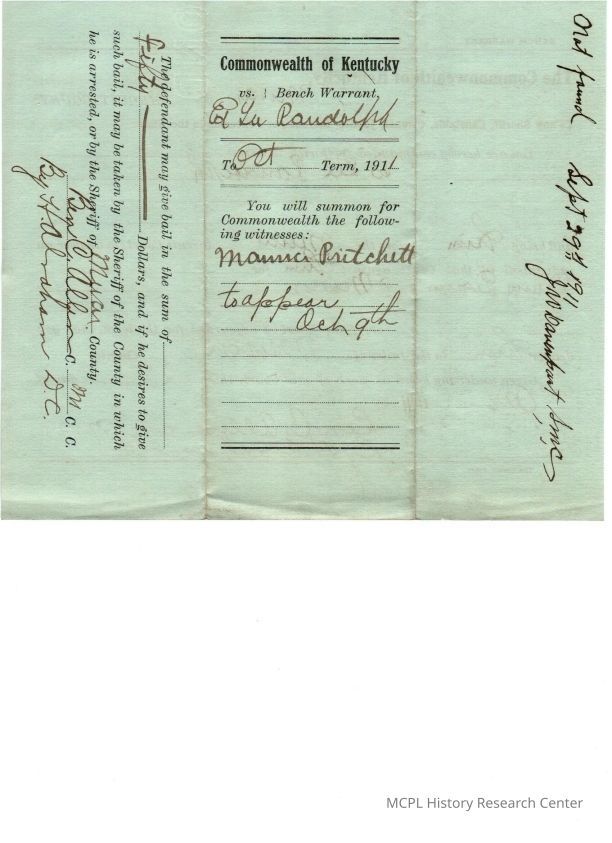 The defendant may give bail in the sum of
fifty Dollars, and if he desires to give
such bail, it may be taken by the Sheriff of the County in which
he is arrested, or by the Sheriff of County.
Ben C. C. M C. C.
By H Abraham D.C.
Commonwealth of Kentucky
vs. } Bench Warrant,
Randolph
To Oct Term, 1911
You will summon for
Commonwealth the follow-
ing witnesses:
Pritchett
to appear
Oct 9th
Not found Sept 29th 1911
JW Davenport
MCPL History Research Center